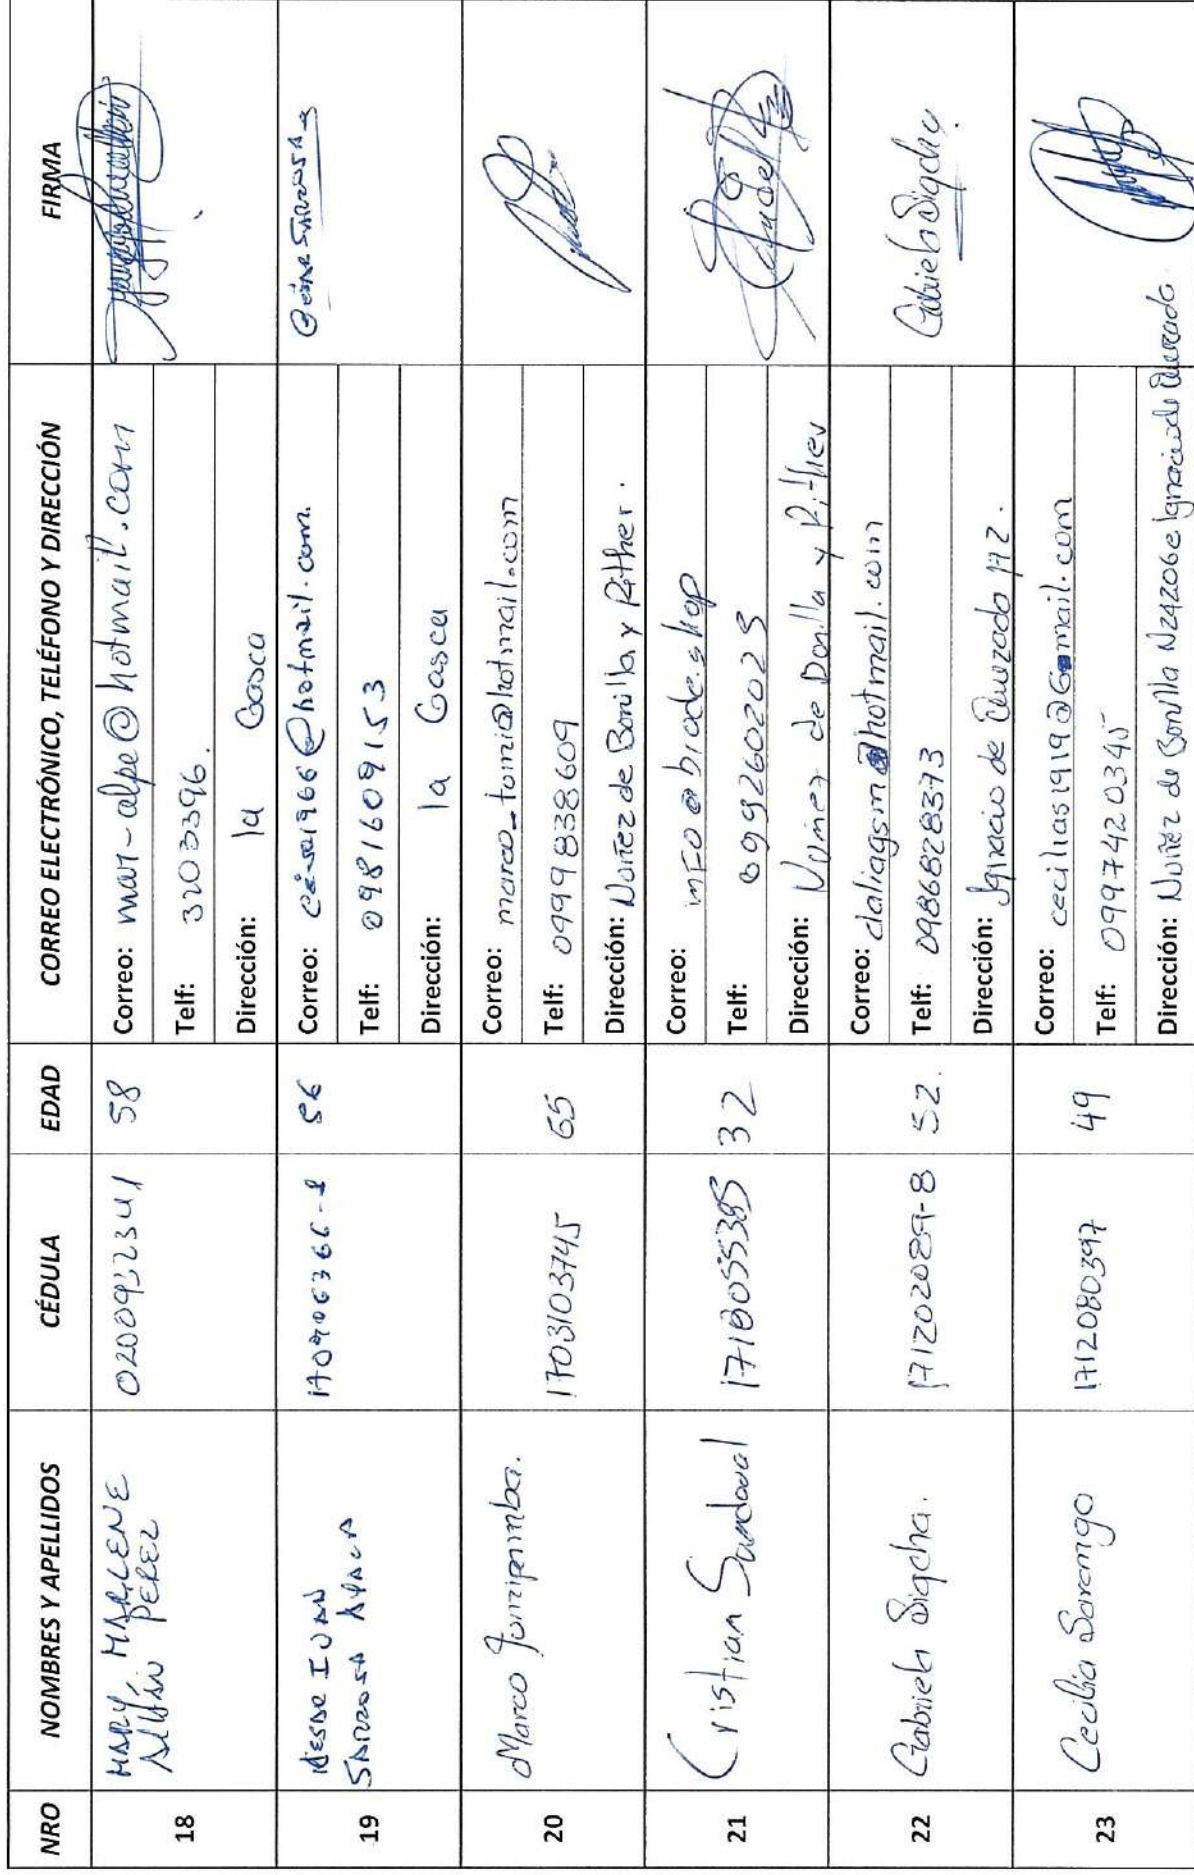 NRO NOMBRES Y APELLIDOS CÉDULA EDAD CORREO ELECTRÓNICO, TELÉFONO Y DIRECCIÓN FIRMA
18 MARY MARLENE PEREZ 58
Correo: mar-alpe@hotmail.com
Telf: 3203396.
Dirección: la Gasca
19 IVAN 56
Correo: @hotmail.com.
Telf: 0981609153
Dirección: la Gasca
20 Marco 1703103745 65
Correo: marco_tomi@hotmail.com
Telf: 0999838609
Dirección: Nuñez de Bonilla y Rither.
21 Cristian Sandoval 1718055385 32
Correo: info@biode.shop
Telf: 0992602023
Dirección: Nuñez de Bonilla y Rither
22 Gabriela Sigcha. 171202089-8 52.
Correo: daliagsm@hotmail.com
Telf: 0986828373
Dirección: Ignacio de Quezado 172.
Gabriela Sigcha
23 Cecilia Sarango 1712080397 49
Correo: cecilias1919@Gmail.com
Telf: 0997420345
Dirección: Nuñez de Bonilla N24206 e Ignacio de Quezado